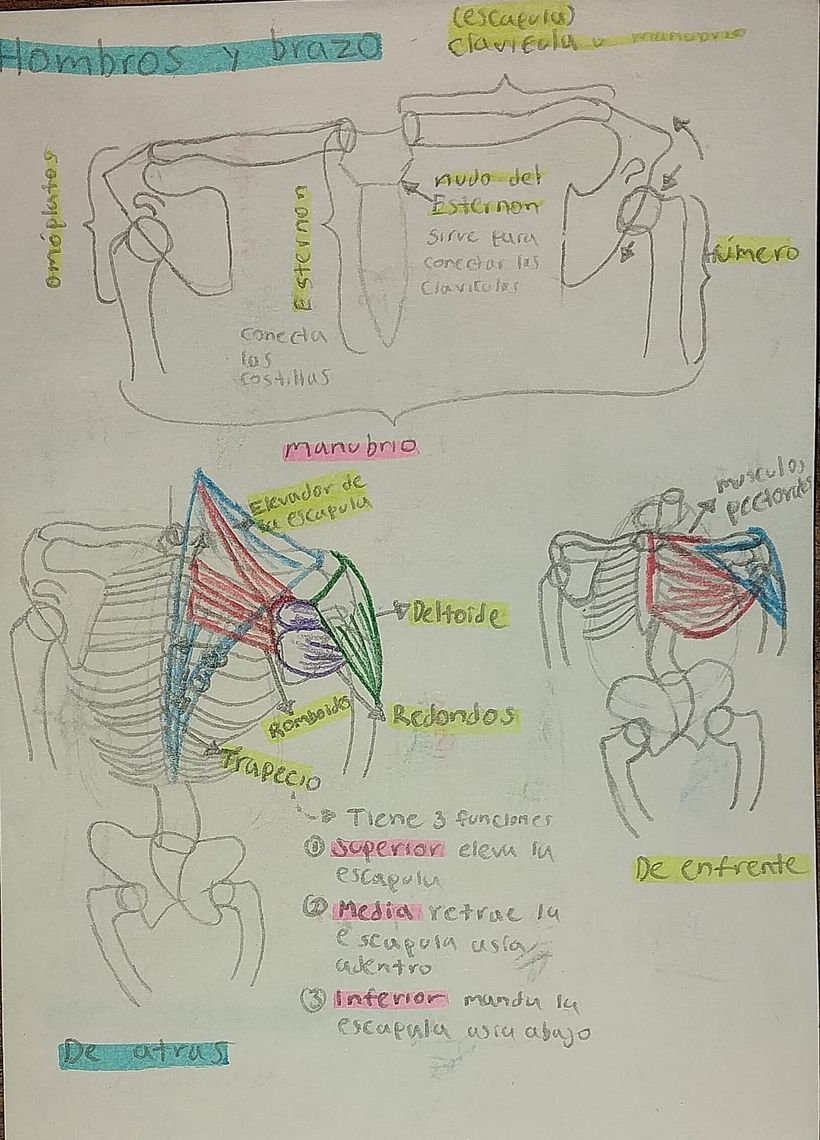 Hombros y brazo
(escapula)
clavicula o manubrio
omóplatos
Esternon
nudo del
Esternon
sirve para
conectar las
claviculas
Húmero
conecta
las
costillas
manubrio
Elevador de
la escapula
musculos
pectorales
Deltoide
Romboides
Redondos
Trapecio
Tiene 3 funciones
① Superior eleva la
escapula
② Media retrae la
escapula asia
adentro
③ Inferior manda la
escapula asia abajo
De enfrente
De atras